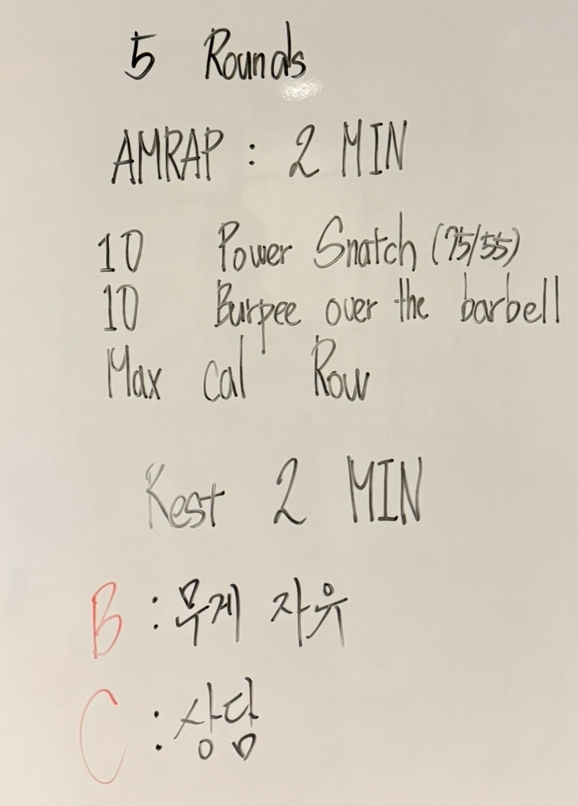 5 Rounds
AMRAP : 2 MIN
10 Power Snatch (75/55)
10 Burpee over the barbell
Max cal Row
Rest 2 MIN
B : 무게 자유
C : 상담